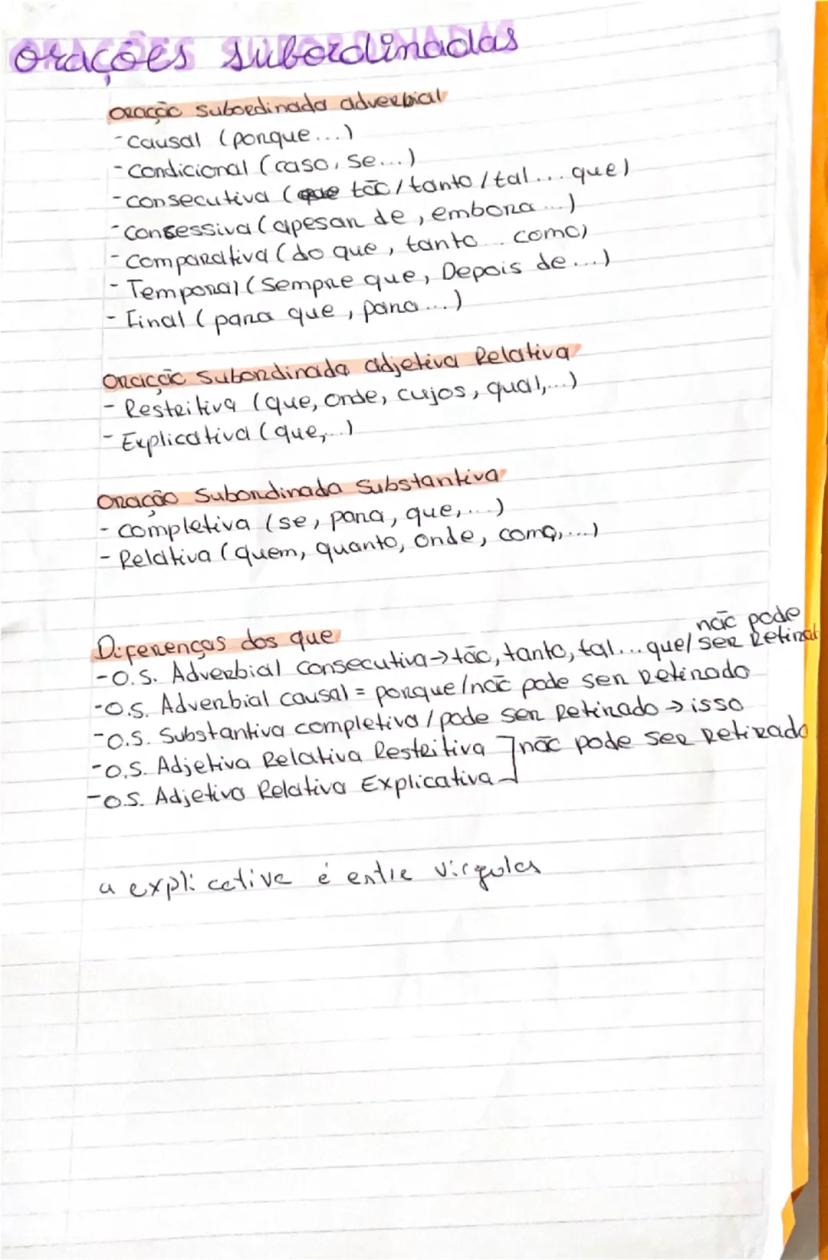 orações subordinadas
oração subordinada adverbial
- causal (porque...)
- condicional (caso, se...)
- consecutiva (tão/tanto/tal... que)
- consessiva (apesar de, embora...)
- comparativa (do que, tanto... como)
- Temporal (Sempre que, Depois de...)
- Final (para que, para...)
oração subordinada adjetiva Relativa
- Restritiva (que, onde, cujos, qual,...)
- Explicativa (que,...)
oração Subordinada Substantiva
- completiva (se, para, que,...)
- Relativa (quem, quanto, onde, como,...)
Diferenças dos que
-O.S. Adverbial consecutiva→tão, tanto, tal...que/ não pode ser retirado
-O.S. Adverbial causal = porque/não pode ser retirado
-O.S. Substantiva completiva/pode ser retirado → isso
-O.S. Adjetiva Relativa Restritiva ] não pode ser retirado
-O.S. Adjetiva Relativa Explicativa
a explicative é entre vírgulas